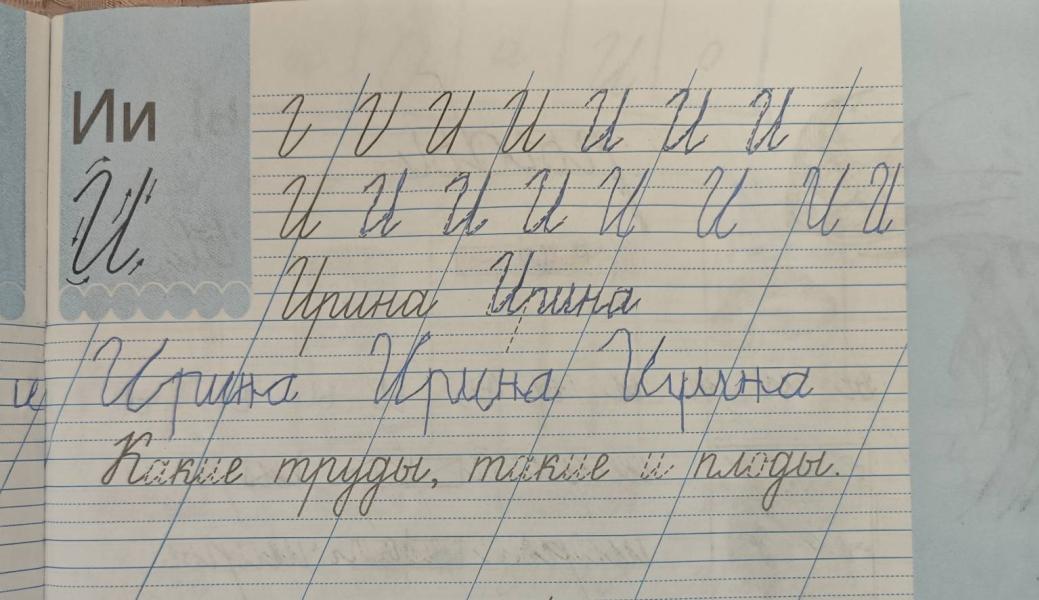 Ии
И И И И И И И
И И И И И И И И
И
Ирина Ирина
и Ирина Ирина Ирина
Какие труды, такие и плоды.